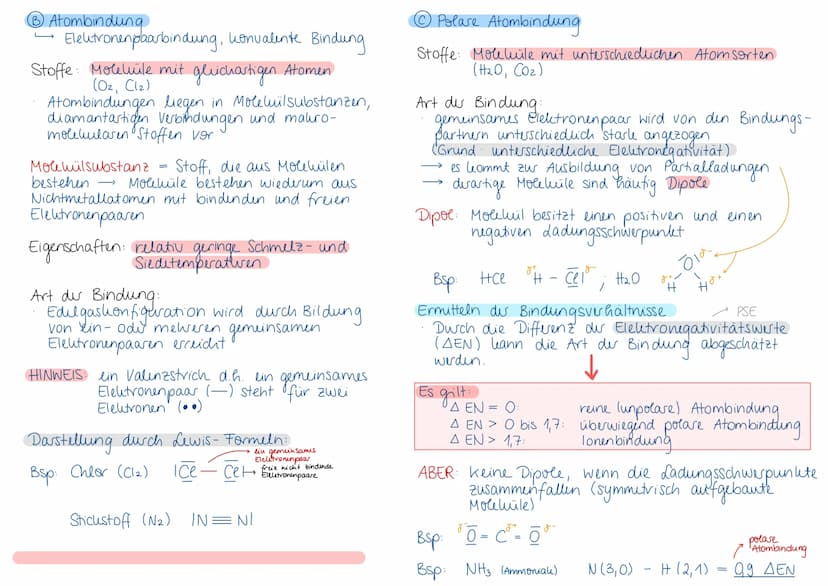 Ⓑ Atombindung
↳ Elektronenpaarbindung, konvalente Bindung
Stoffe: Moleküle mit gleichartigen Atomen
(O₂, Cl₂)
· Atombindungen liegen in Molekülsubstanzen,
diamantartigen Verbindungen und makro-
molekularen Stoffen vor
Molekülsubstanz = Stoff, die aus Molekülen
bestehen → Moleküle bestehen wiederum aus
Nichtmetallatomen mit bindenden und freien
Elektronenpaaren
Eigenschaften: relativ geringe Schmelz- und
Siedetemperaturen
Art der Bindung:
· Edelgaskonfiguration wird durch Bildung
von ein- oder mehreren gemeinsamen
Elektronenpaaren erreicht
HINWEIS: ein Valenzstrich d.h. ein gemeinsames
Elektronenpaar (—) steht für zwei
Elektronen (••)
Darstellung durch Lewis-Formeln:
ein gemeinsames
Elektronenpaar
Bsp: Chlor (Cl₂) |C̲̅l̲̅ — C̲̅l̲̅| → freie nicht bindende
Elektronenpaare
Stickstoff (N₂) |N≡N|
Ⓒ Polare Atombindung
Stoffe: Moleküle mit unterschiedlichen Atomsorten
(H₂O, CO₂)
Art der Bindung:
· gemeinsames Elektronenpaar wird von den Bindungs-
partnern unterschiedlich stark angezogen
(Grund: unterschiedliche Elektronegativität)
→ es kommt zur Ausbildung von Partialladungen
→ derartige Moleküle sind häufig Dipole
Dipol: Molekül besitzt einen positiven und einen
negativen Ladungsschwerpunkt
Bsp: HCl δ+ H – C̲̅l̲̅| δ- ; H₂O δ+ H O δ- H δ+
Ermitteln der Bindungsverhältnisse
PSE
· Durch die Differenz der Elektronegativitätswerte
(ΔEN) kann die Art der Bindung abgeschätzt
werden.
Es gilt:
Δ EN = 0: reine (unpolare) Atombindung
Δ EN > 0 bis 1,7: überwiegend polare Atombindung
Δ EN > 1,7: Ionenbindung
ABER: keine Dipole, wenn die Ladungsschwerpunkte
zusammenfallen (symmetrisch aufgebaute
Moleküle)
Bsp: δ- O̲̅ = C δ+ = O̲̅ δ-
polare
Atombindung
Bsp: NH₃ (Ammoniak) N(3,0) – H(2,1) = 0,9 ΔEN